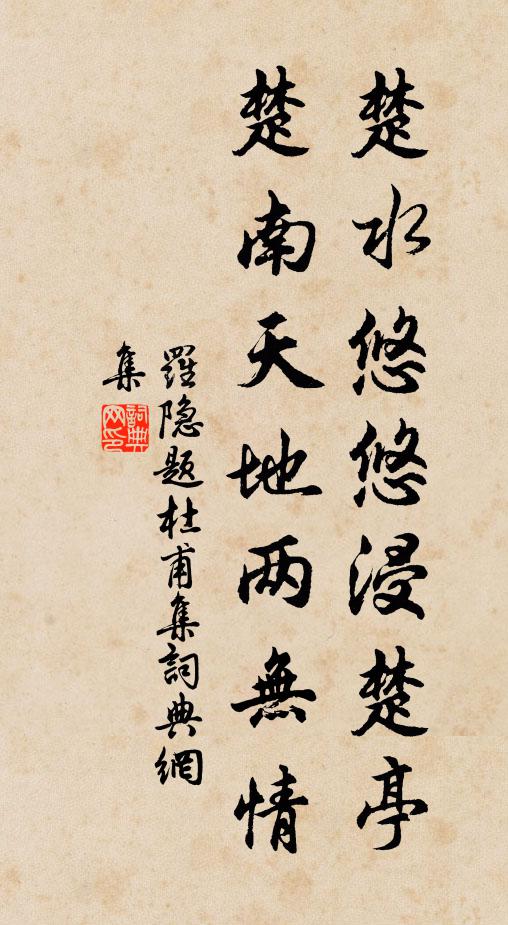 楚水悠悠浸楚亭
楚南天地两無情
羅隐题杜甫集詞典網
集
詞典网印